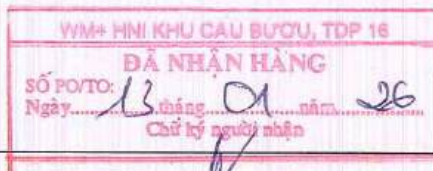 WM+ HNI KHU CAU BƯƠU, TDP 16
ĐÃ NHẬN HÀNG
SỐ PO/TO:
Ngày 13 tháng 01 năm 26
Chữ ký người nhận